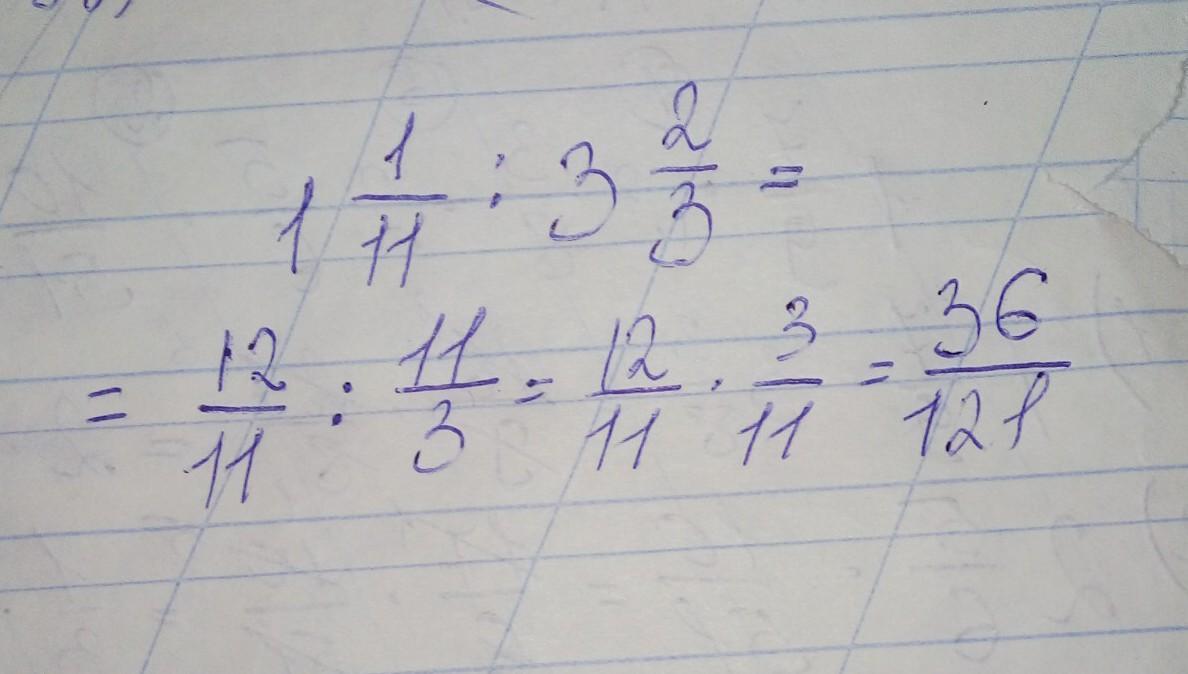 1 1/11 : 3 2/3 =
= 12/11 : 11/3 = 12/11 · 3/11 = 36/121